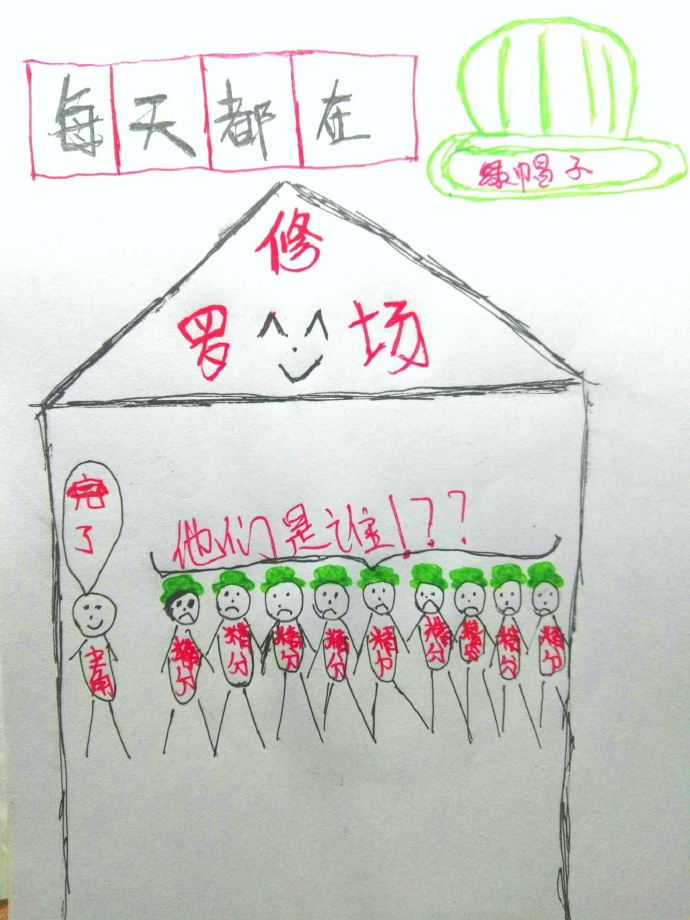 每天都在
绿帽子
修
罗 场
完
了
他们是谁！？？
主角
精分
精分
精分
精分
精分
精分
精分
精分
精分